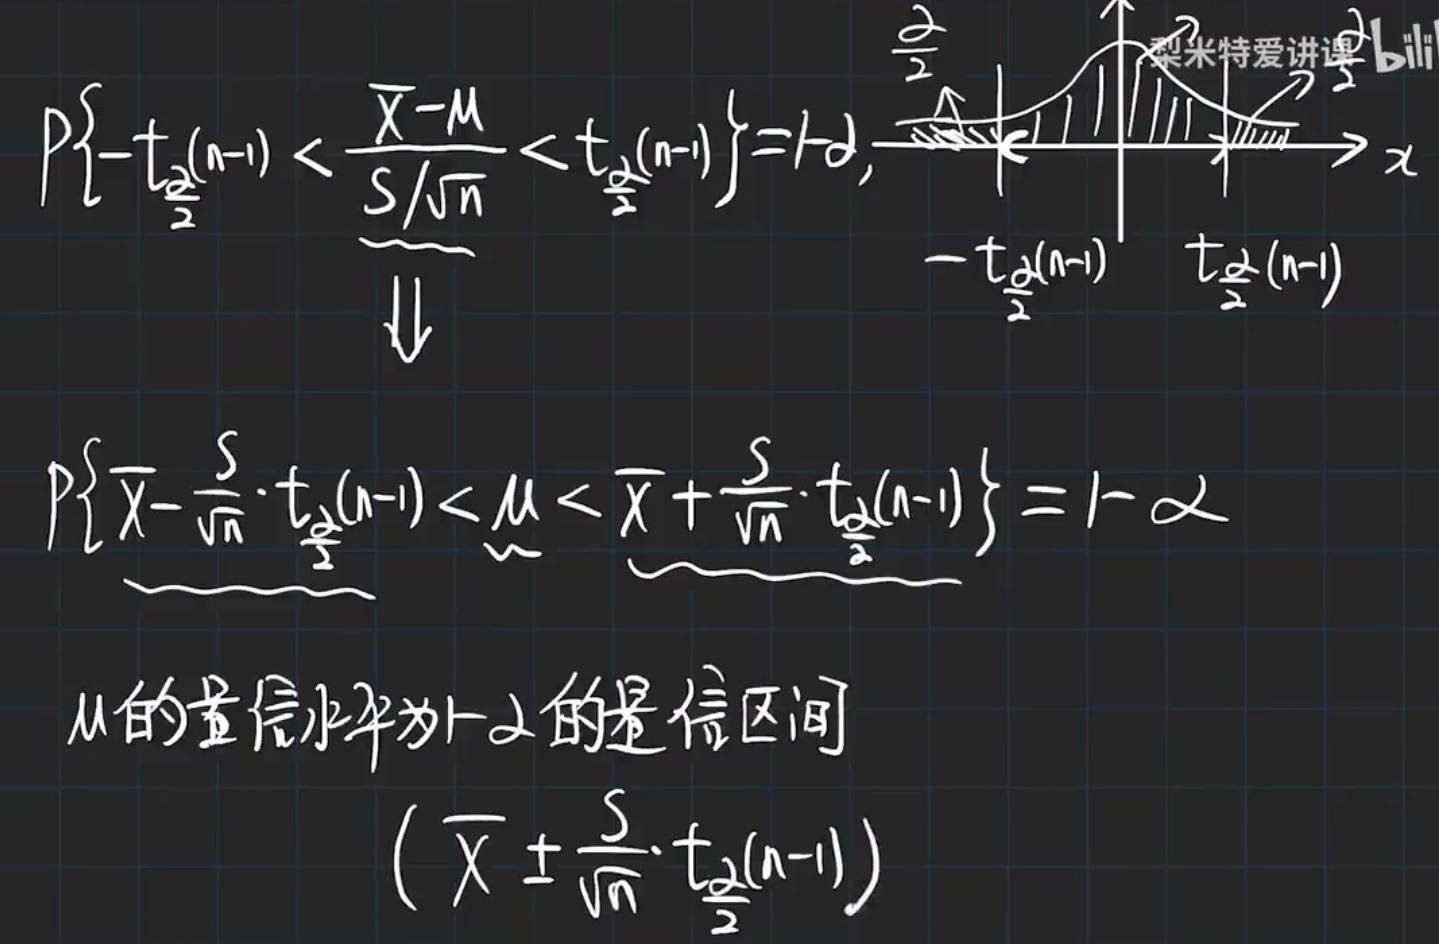 α/2
梨米特爱讲课 bili
α/2
P{-t_{α/2}(n-1) < (X̄-μ)/(S/√n) < t_{α/2}(n-1)}=1-α,
x
-t_{α/2}(n-1) t_{α/2}(n-1)
⇓
P{X̄-S/√n·t_{α/2}(n-1)<μ<X̄+S/√n·t_{α/2}(n-1)}=1-α
μ的置信水平为1-α的置信区间
(X̄±S/√n·t_{α/2}(n-1))